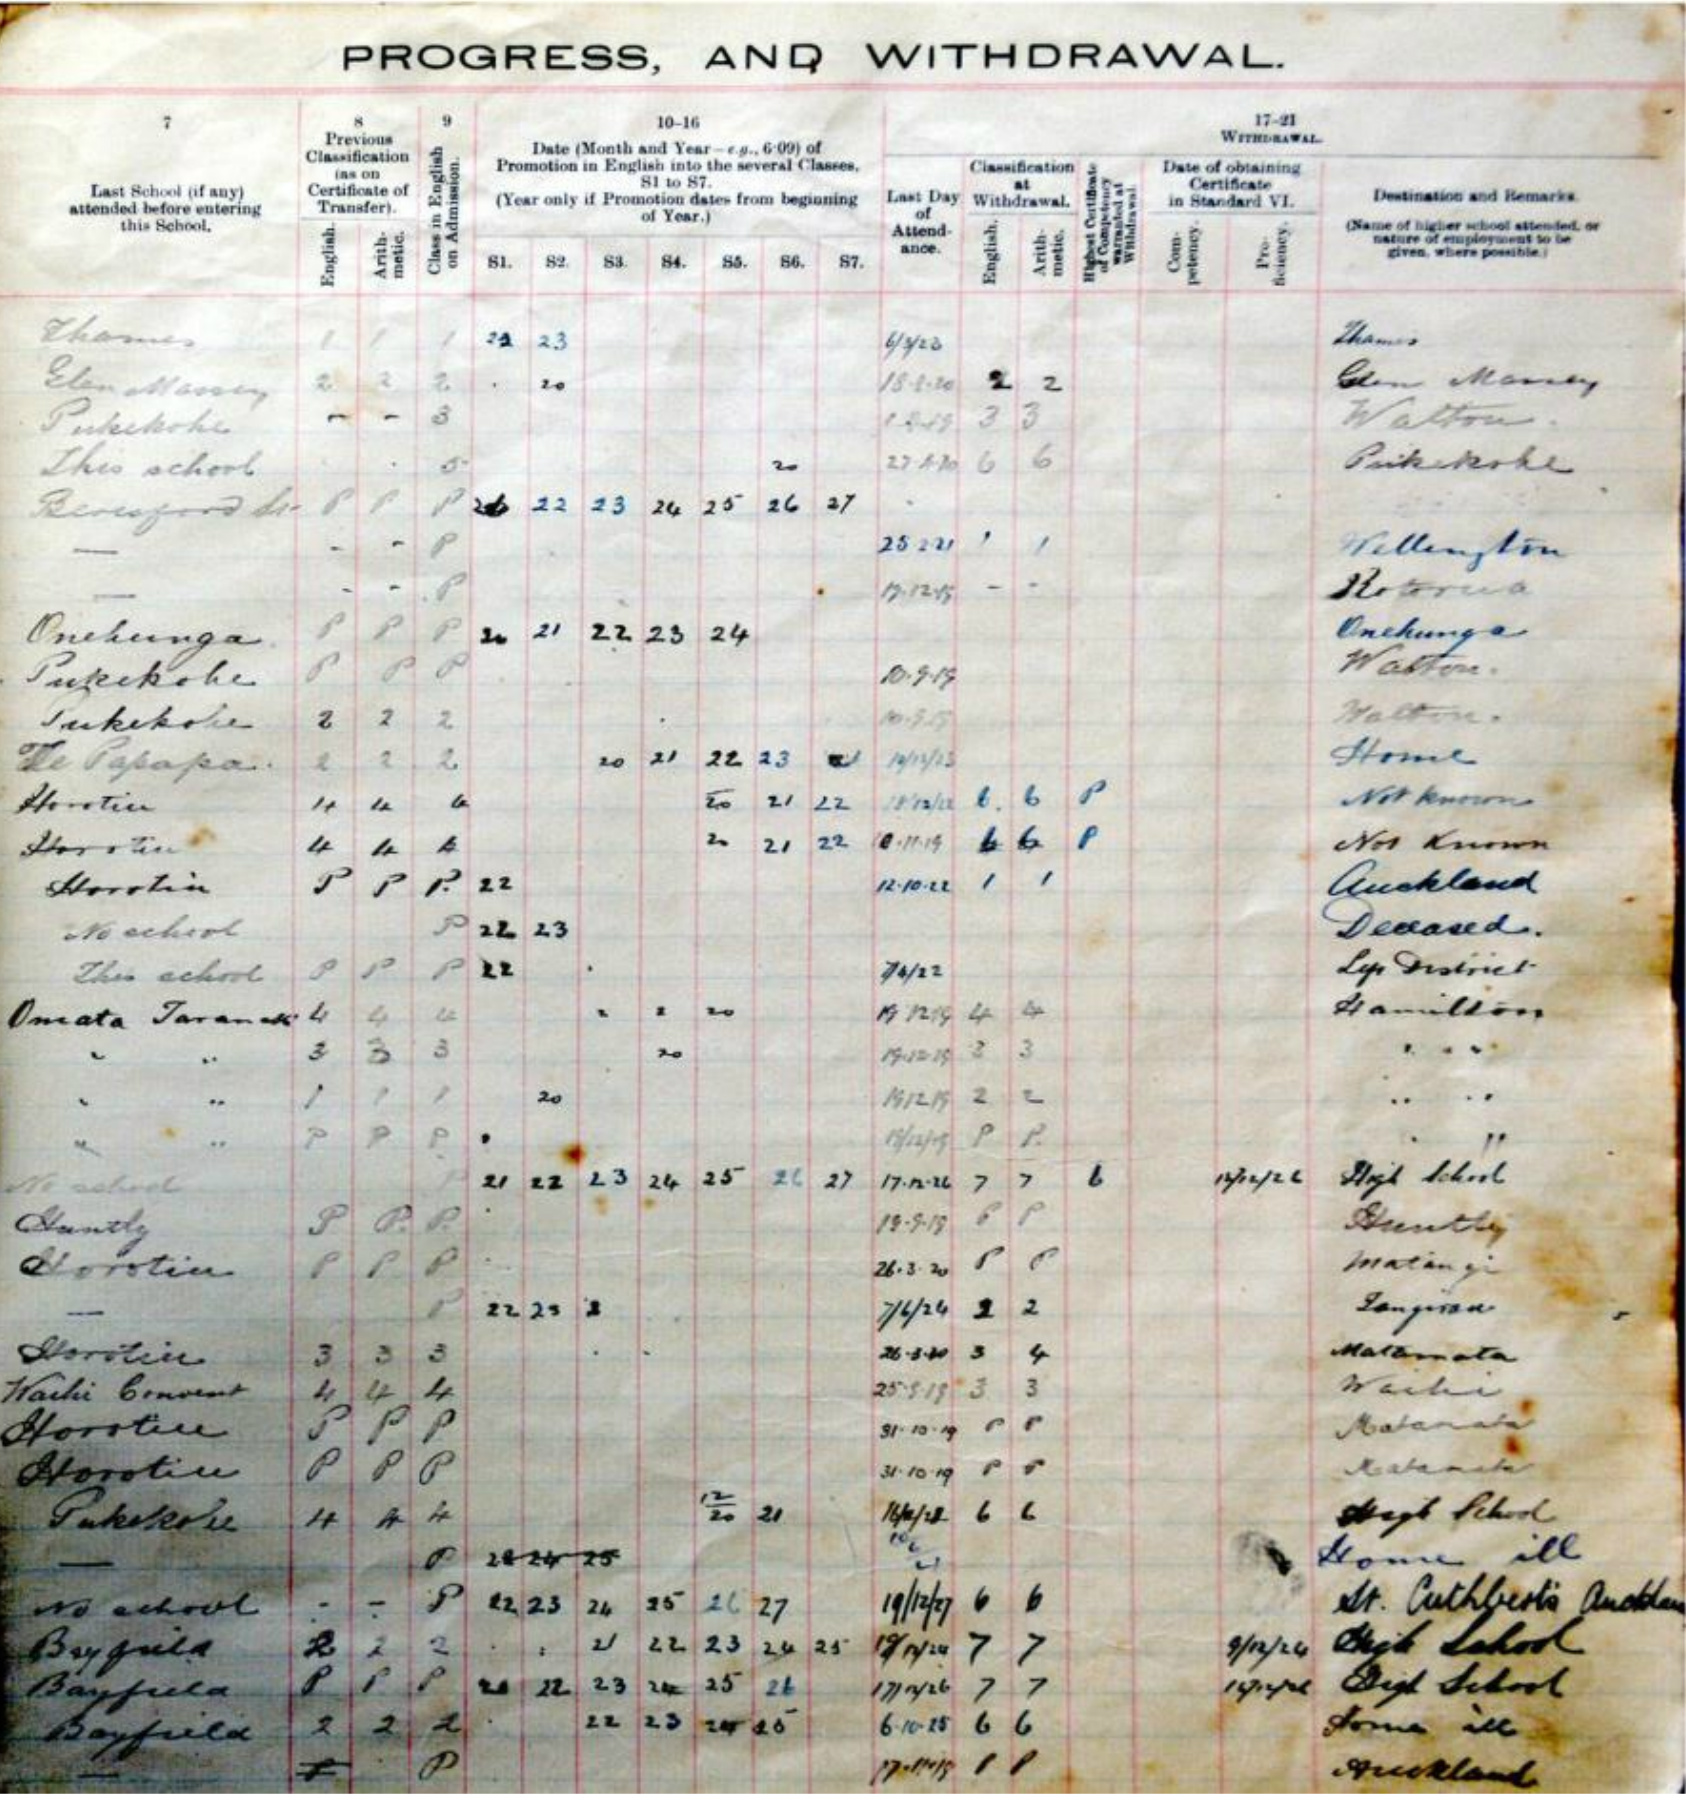 PROGRESS, AND WITHDRAWAL.
7 8 9 10-16 17-21
Last School (if any) attended before entering this School.
Previous Classification (as on Certificate of Transfer).
English. Arithmetic.
Class in English on Admission.
Date (Month and Year—e.g., 6·09) of Promotion in English into the several Classes, S1 to S7.
(Year only if Promotion dates from beginning of Year.)
S1. S2. S3. S4. S5. S6. S7.
WITHDRAWAL.
Last Day of Attendance.
Classification at Withdrawal.
English. Arithmetic.
Highest Certificate of Competency warranted at Withdrawal.
Date of obtaining Certificate in Standard VI.
Competency. Proficiency.
Destination and Remarks.
(Name of higher school attended, or nature of employment to be given, where possible.)
Thames 1 1 1 22 23 6/3/23 Thames
Glen Massey 2 2 2 20 2 2 Glen Massey
Pukekohe - - 3 3 3 Walton.
This school 5 20 6 6 Pukekohe
Beresford St P P P 22 23 24 25 26 27
— - - P 25 2 21 1 1 Wellington
— - - P - - Rotorua
Onehunga P P P 20 21 22 23 24 Onehunga
Pukekohe P P P 10.9.19 Walton.
Pukekohe 2 2 2 Walton.
Te Papapa. 2 2 2 20 21 22 23 Home
Horotiu 4 4 4 20 21 22 6. 6 P Not known
Horotiu 4 4 4 20 21 22 6 6 P Not Known
Horotiu P P P. 22 12.10.22 1 1 Auckland
No school P 22 23 Deceased.
This school P P P 22 7/4/22 District
Omata Taranaki 4 4 4 20 19 12 19 4 4 Hamilton
" " 3 3 3 20 19.12.19 3 3 " "
" " 1 1 1 20 19 12 19 2 2 " "
" " P P P P P. "
No school P 21 22 23 24 25 26 27 17.12.26 7 7 6 High School
Huntly P P. P. P P Huntly
Horotiu P P P 26.3.20 P P Matangi
— P 22 23 7/6/24 2 2
Horotiu 3 3 3 26.3.20 3 4 Matamata
Waihi Convent 4 4 4 25.9.19 3 3 Waihi
Horotiu P P P 31.10.19 P P Matamata
Horotiu P P P 31.10.19 P P Matamata
Pukekohe 4 4 4 12/20 21 6 6 High School
— P 24 25 Home ill
No school - - P 22 23 24 25 26 27 19/12/27 6 6 St. Cuthbert's
Bayfield 2 2 2 21 22 23 24 25 7 7 9/12/24 High School
Bayfield P P P 22 23 24 25 26 17/12/26 7 7 High School
Bayfield 2 2 2 22 23 24 25 6.10.25 6 6 Home ill
— P P P Auckland